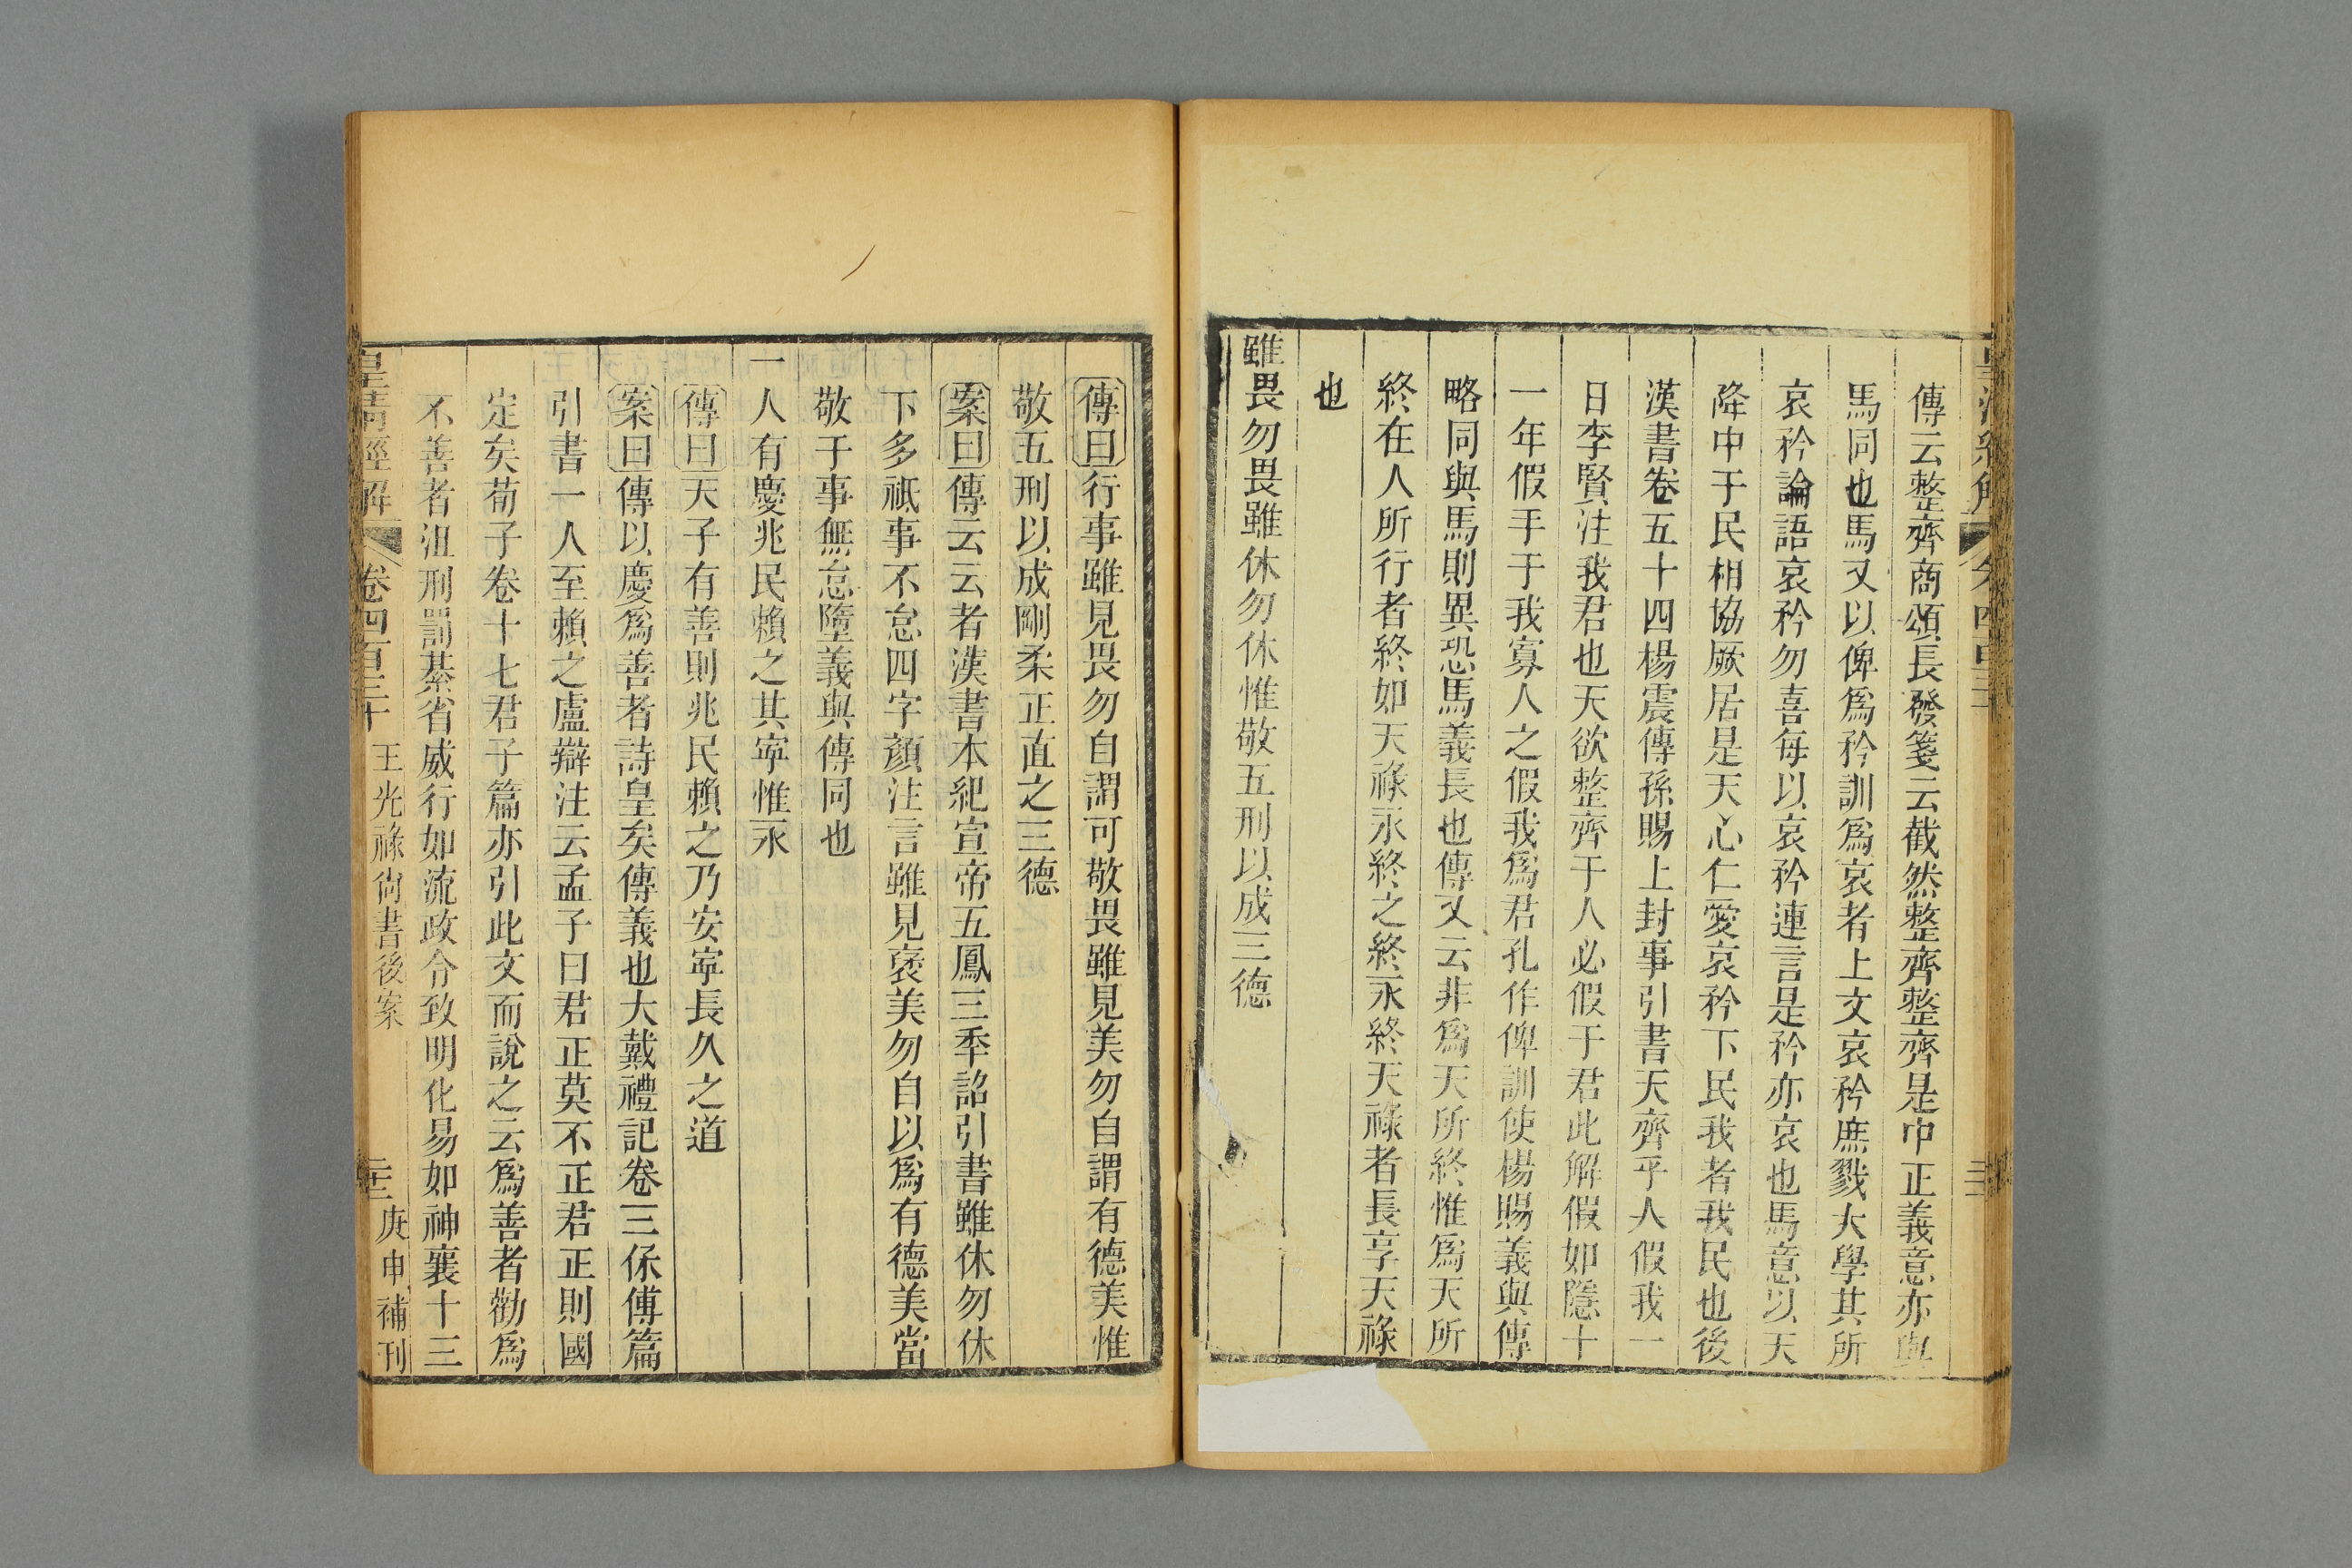 傳云整齊商頌長發箋云截然整齊整齊是中正義意亦與
馬同也馬又以俾爲矜訓爲哀者上文哀矜庶戮大學其所
哀矜論語哀矜勿喜每以哀矜連言是矜亦哀也馬意以天
降中于民相協厥居是天心仁愛哀矜下民我者我民也後
漢書卷五十四楊震傳孫賜上封事引書天齊乎人假我一
日李賢注我君也天欲整齊于人必假于君此解假如隱十
一年假手于我寡人之假我爲君孔作俾訓使楊賜義與傳
略同與馬則異恐馬義長也傳又云非爲天所終惟爲天所
終在人所行者終如天祿永終之終永終天祿者長享天祿
也
雖畏勿畏雖休勿休惟敬五刑以成三德
傳曰行事雖見畏勿自謂可敬畏雖見美勿自謂有德美惟
敬五刑以成剛柔正直之三德
案曰傳云云者漢書本紀宣帝五鳳三秊詔引書雖休勿休
下多祗事不怠四字顏注言雖見褒美勿自以爲有德美當
敬于事無怠墮義與傳同也
一人有慶兆民賴之其寧惟永
傳曰天子有善則兆民賴之乃安寧長久之道
案曰傳以慶爲善者詩皇矣傳義也大戴禮記卷三保傅篇
引書一人至賴之盧辯注云孟子曰君正莫不正君正則國
定矣荀子卷十七君子篇亦引此文而說之云爲善者勸爲
不善者沮刑罰綦省威行如流政令致明化易如神襄十三
皇清經解 卷四百三十 王光祿尙書後案 庚申補刊